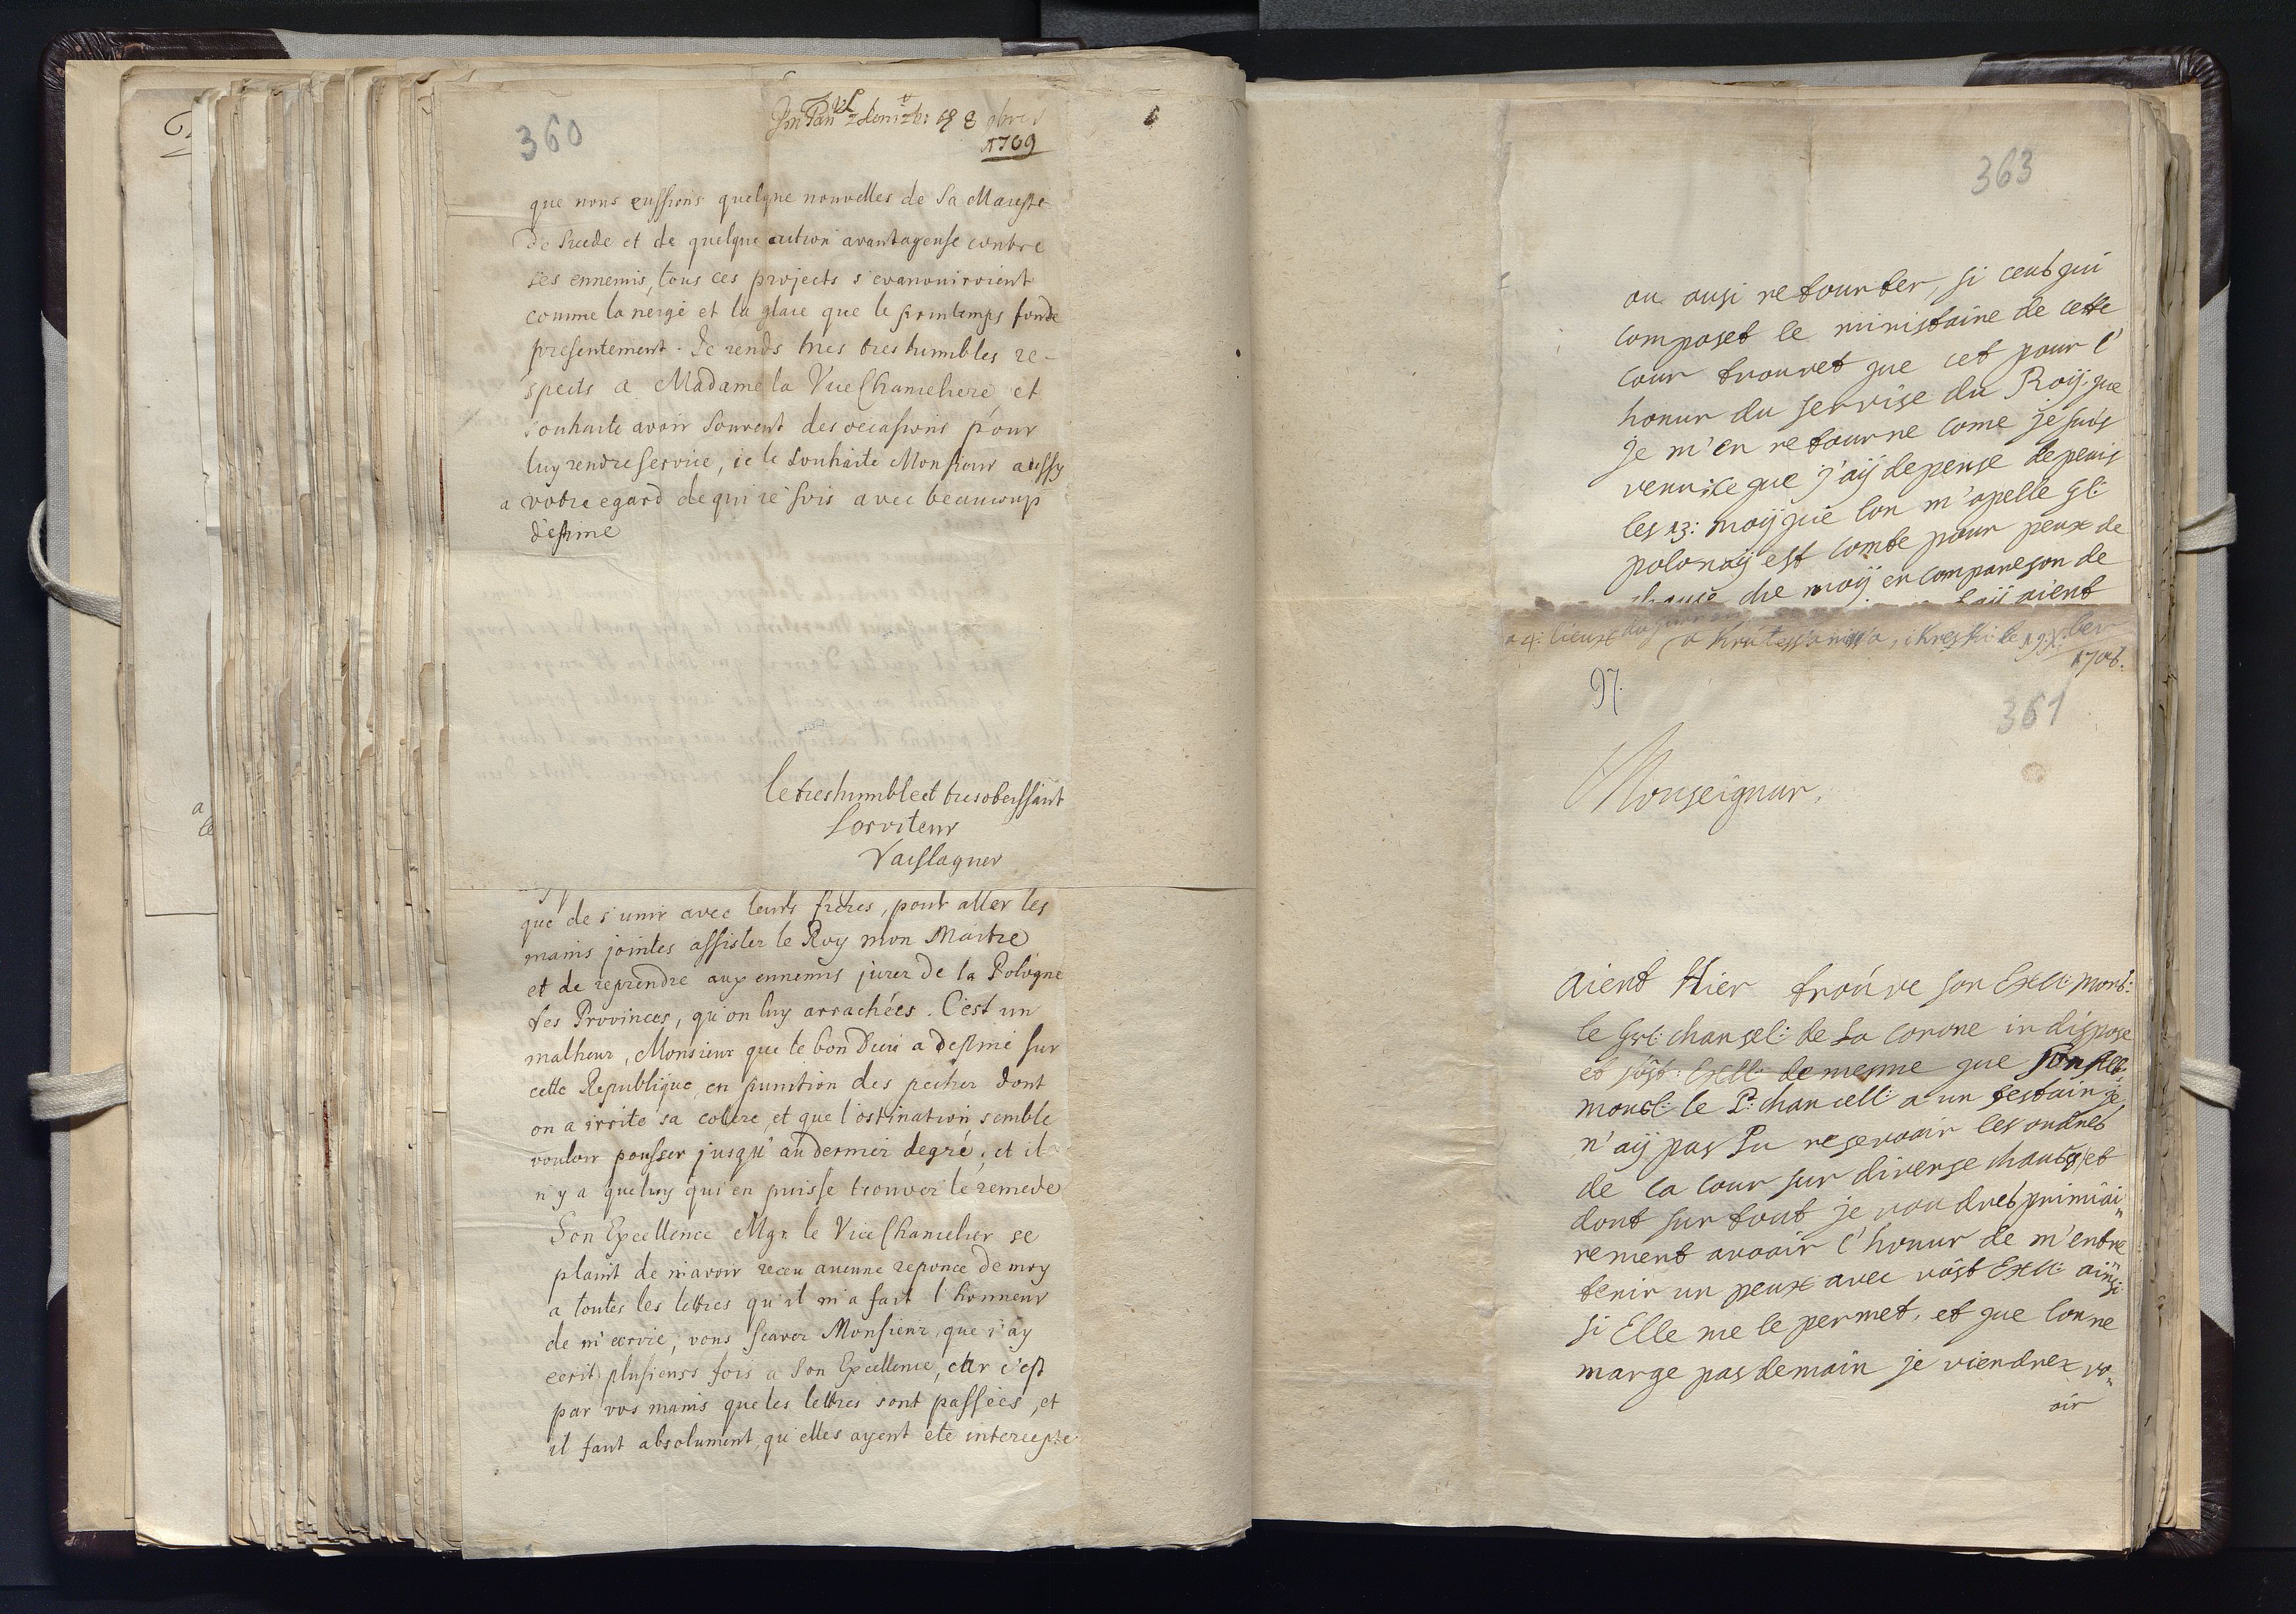 360
1709
que nous eussions quelque nouvelles de Sa Maieste
de Suede et de quelque action avantageuse contre
ses ennemis, tous ces projects s'evanouiroient
comme la neige et la glace que le printemps fonde
presentement. Je rends mes tres humbles re-
spects a Madame la Vice Chanceliere et
souhaite avoir souvent des occasions pour
luy rendre service, ie le souhaite Monsieur aussy
a votre egard de qui ie suis avec beaucoup
d'estime
le tres humble et tres obeissant
Serviteur
que de s'unir avec leurs freres, pour aller les
mains jointes assister le Roy mon Maitre
et de reprendre aux ennemis jurez de la Pologne
les Provinces, qu'on luy arrachées. C'est un
malheur, Monsieur que le bon Dieu a destiné sur
cette Republique en punition des pechez dont
on a irrite sa colere, et que l'ostination semble
vouloir pousser jusqu'au dernier degré, et il
n'y a que luy qui en puisse trouver le remede
Son Excellence Mgr. le Vice Chancelier se
plaint de n'avoir receu aucune reponce de moy
a toutes les lettres qu'il m'a fait l'honneur
de m'ecrire, vous scavez Monsieur, que j'ay
ecrit plusieurs fois a Son Excellence, car c'est
par vos mains que les lettres sont passées, et
il faut absolument, qu'elles ayent ete intercepte
363
ou ausi retourter, si ceut qui
composet le ministaire de cette
cour trouvet que cet pour l'
honur du servise du Roij que
je m'en retourne come je suis
venu ce que j'aij depense depeuis
les 13: moij que lon m'apelle Gl:
polonaij est comte pour peux de
chause che moij en compareson de
aient
a 4: lieux
le 19
1708.
97.
361
Monseignur,
aient Hier trouve son Exll: mons:
le Grl: chansel: de La corone indispose
et vost: Exll: de mesme que
mousl: le P: chancell: a un festain je
n'aij pas Pu resevoair les ordres
de la cour sur diverse chauses et
dont sur tout je voudres primiai-
rement avoair l'honur de m'entre
tenir un peux avec vost Exll: ainsi
si Elle me le permet, et que lon ne
marge pas demain je viendrez vo-
oir